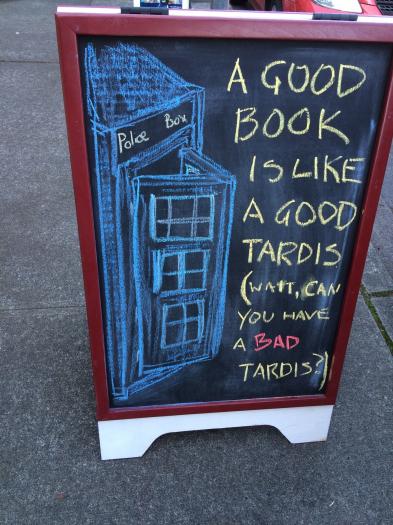 Police Box
A GOOD
BOOK
IS LIKE
A GOOD
TARDIS
(WAIT, CAN
YOU HAVE
A BAD
TARDIS?)